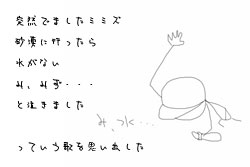 突然でましたミミズ
砂漠に行ったら
水がない
み、みず・・・
と泣きました
み、水…
っていう歌を思い出した